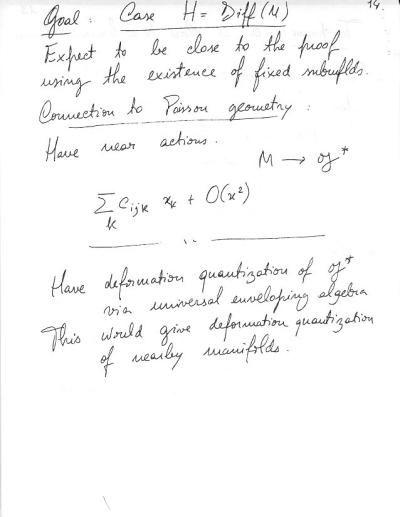 14.
Goal: Case H = Diff(M)
Expect to be close to the proof
using the existence of fixed submflds.
Connection to Poisson geometry:
Have near actions.
M → 𝔤*
∑_k c_ijk x_k + O(x²)
Have deformation quantization of 𝔤*
via universal enveloping algebra
This would give deformation quantization
of nearby manifolds.